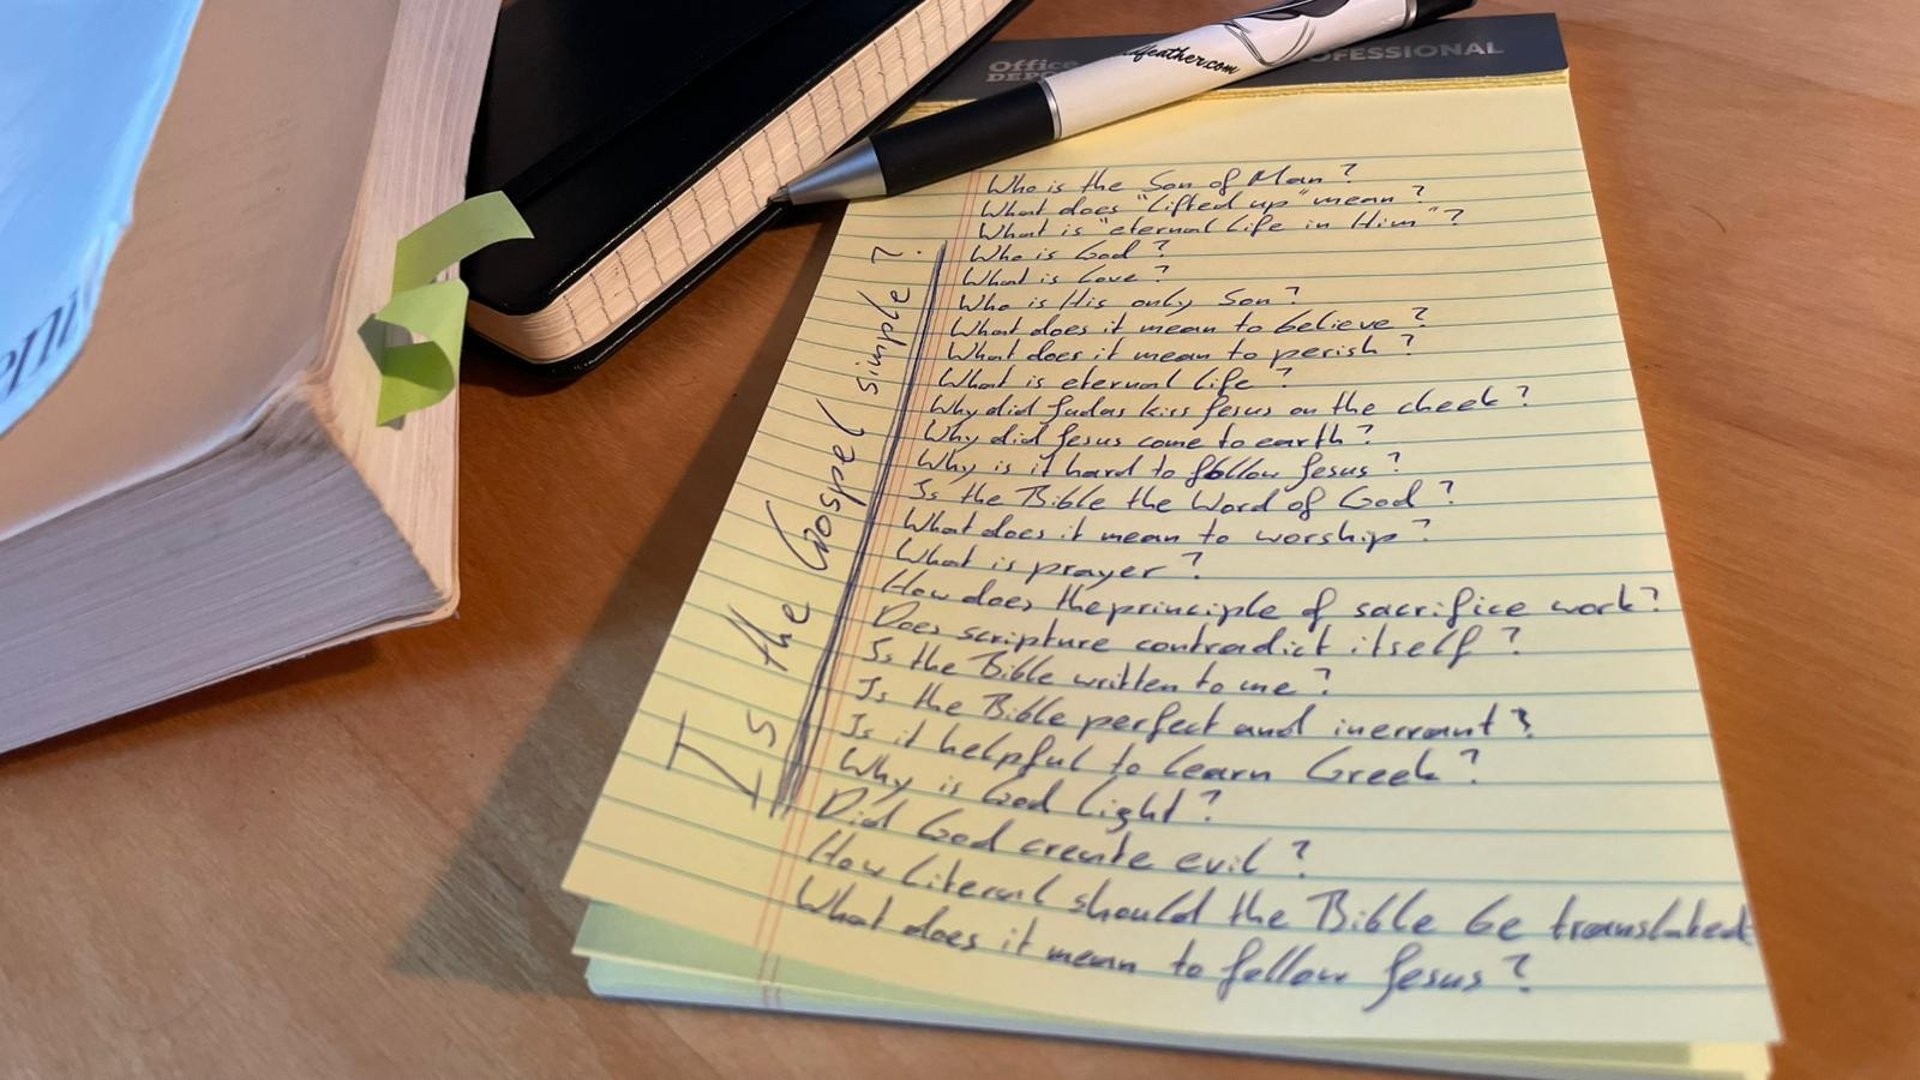 Office
DEPOT
OFESSIONAL
dfeather.com
Who is the Son of Man?
What does "lifted up" mean?
What is "eternal life in Him"?
Who is God?
What is love?
Who is His only Son?
What does it mean to believe?
What does it mean to perish?
What is eternal life?
Why did Judas kiss Jesus on the cheek?
Why did Jesus come to earth?
Why is it hard to follow Jesus?
Is the Bible the Word of God?
What does it mean to worship?
What is prayer?
How does the principle of sacrifice work?
Does scripture contradict itself?
Is the Bible written to me?
Is the Bible perfect and inerrant?
Is it helpful to learn Greek?
Why is God light?
Did God create evil?
How literal should the Bible be translated
What does it mean to follow Jesus?
Is the Gospel simple?